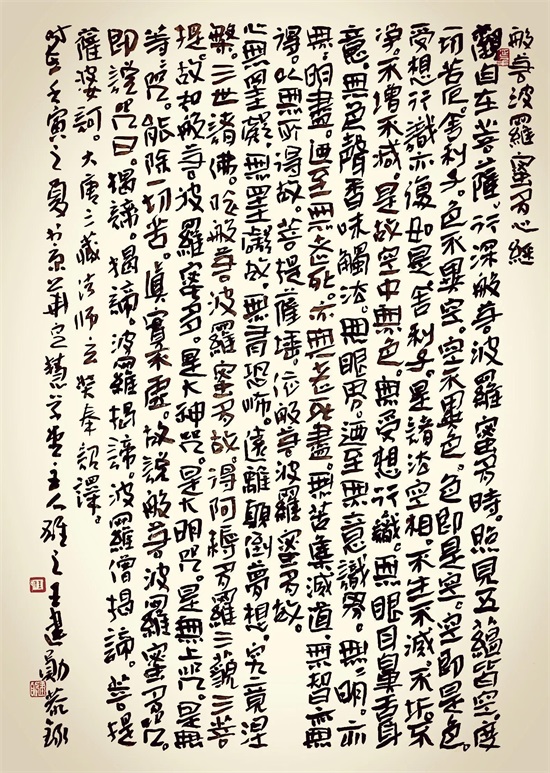 般若波羅蜜多心經
觀自在菩薩。行深般若波羅蜜多時。照見五蘊皆空。度
一切苦厄。舍利子。色不異空。空不異色。色即是空。空即是色。
受想行識亦復如是。舍利子。是諸法空相。不生不滅。不垢不
淨。不增不減。是故空中無色。無受想行識。無眼耳鼻舌身
意。無色聲香味觸法。無眼界。迺至無意識界。無無明。亦
無無明盡。迺至無老死。亦無老死盡。無苦集滅道。無智亦無
得。以無所得故。菩提薩埵。依般若波羅蜜多故。
心無罣礙。無罣礙故。無有恐怖。遠離顛倒夢想。究竟涅
槃。三世諸佛。依般若波羅蜜多故。得阿耨多羅三藐三菩
提。故知般若波羅蜜多。是大神咒。是大明咒。是無上咒。是無
等咒。能除一切苦。真實不虛。故說般若波羅蜜多咒。
即說咒曰。揭諦。揭諦。波羅揭諦。波羅僧揭諦。菩提
薩婆訶。大唐三藏法師玄奘奉詔譯。
壬寅之夏書京華 主人雄之王建勛恭錄